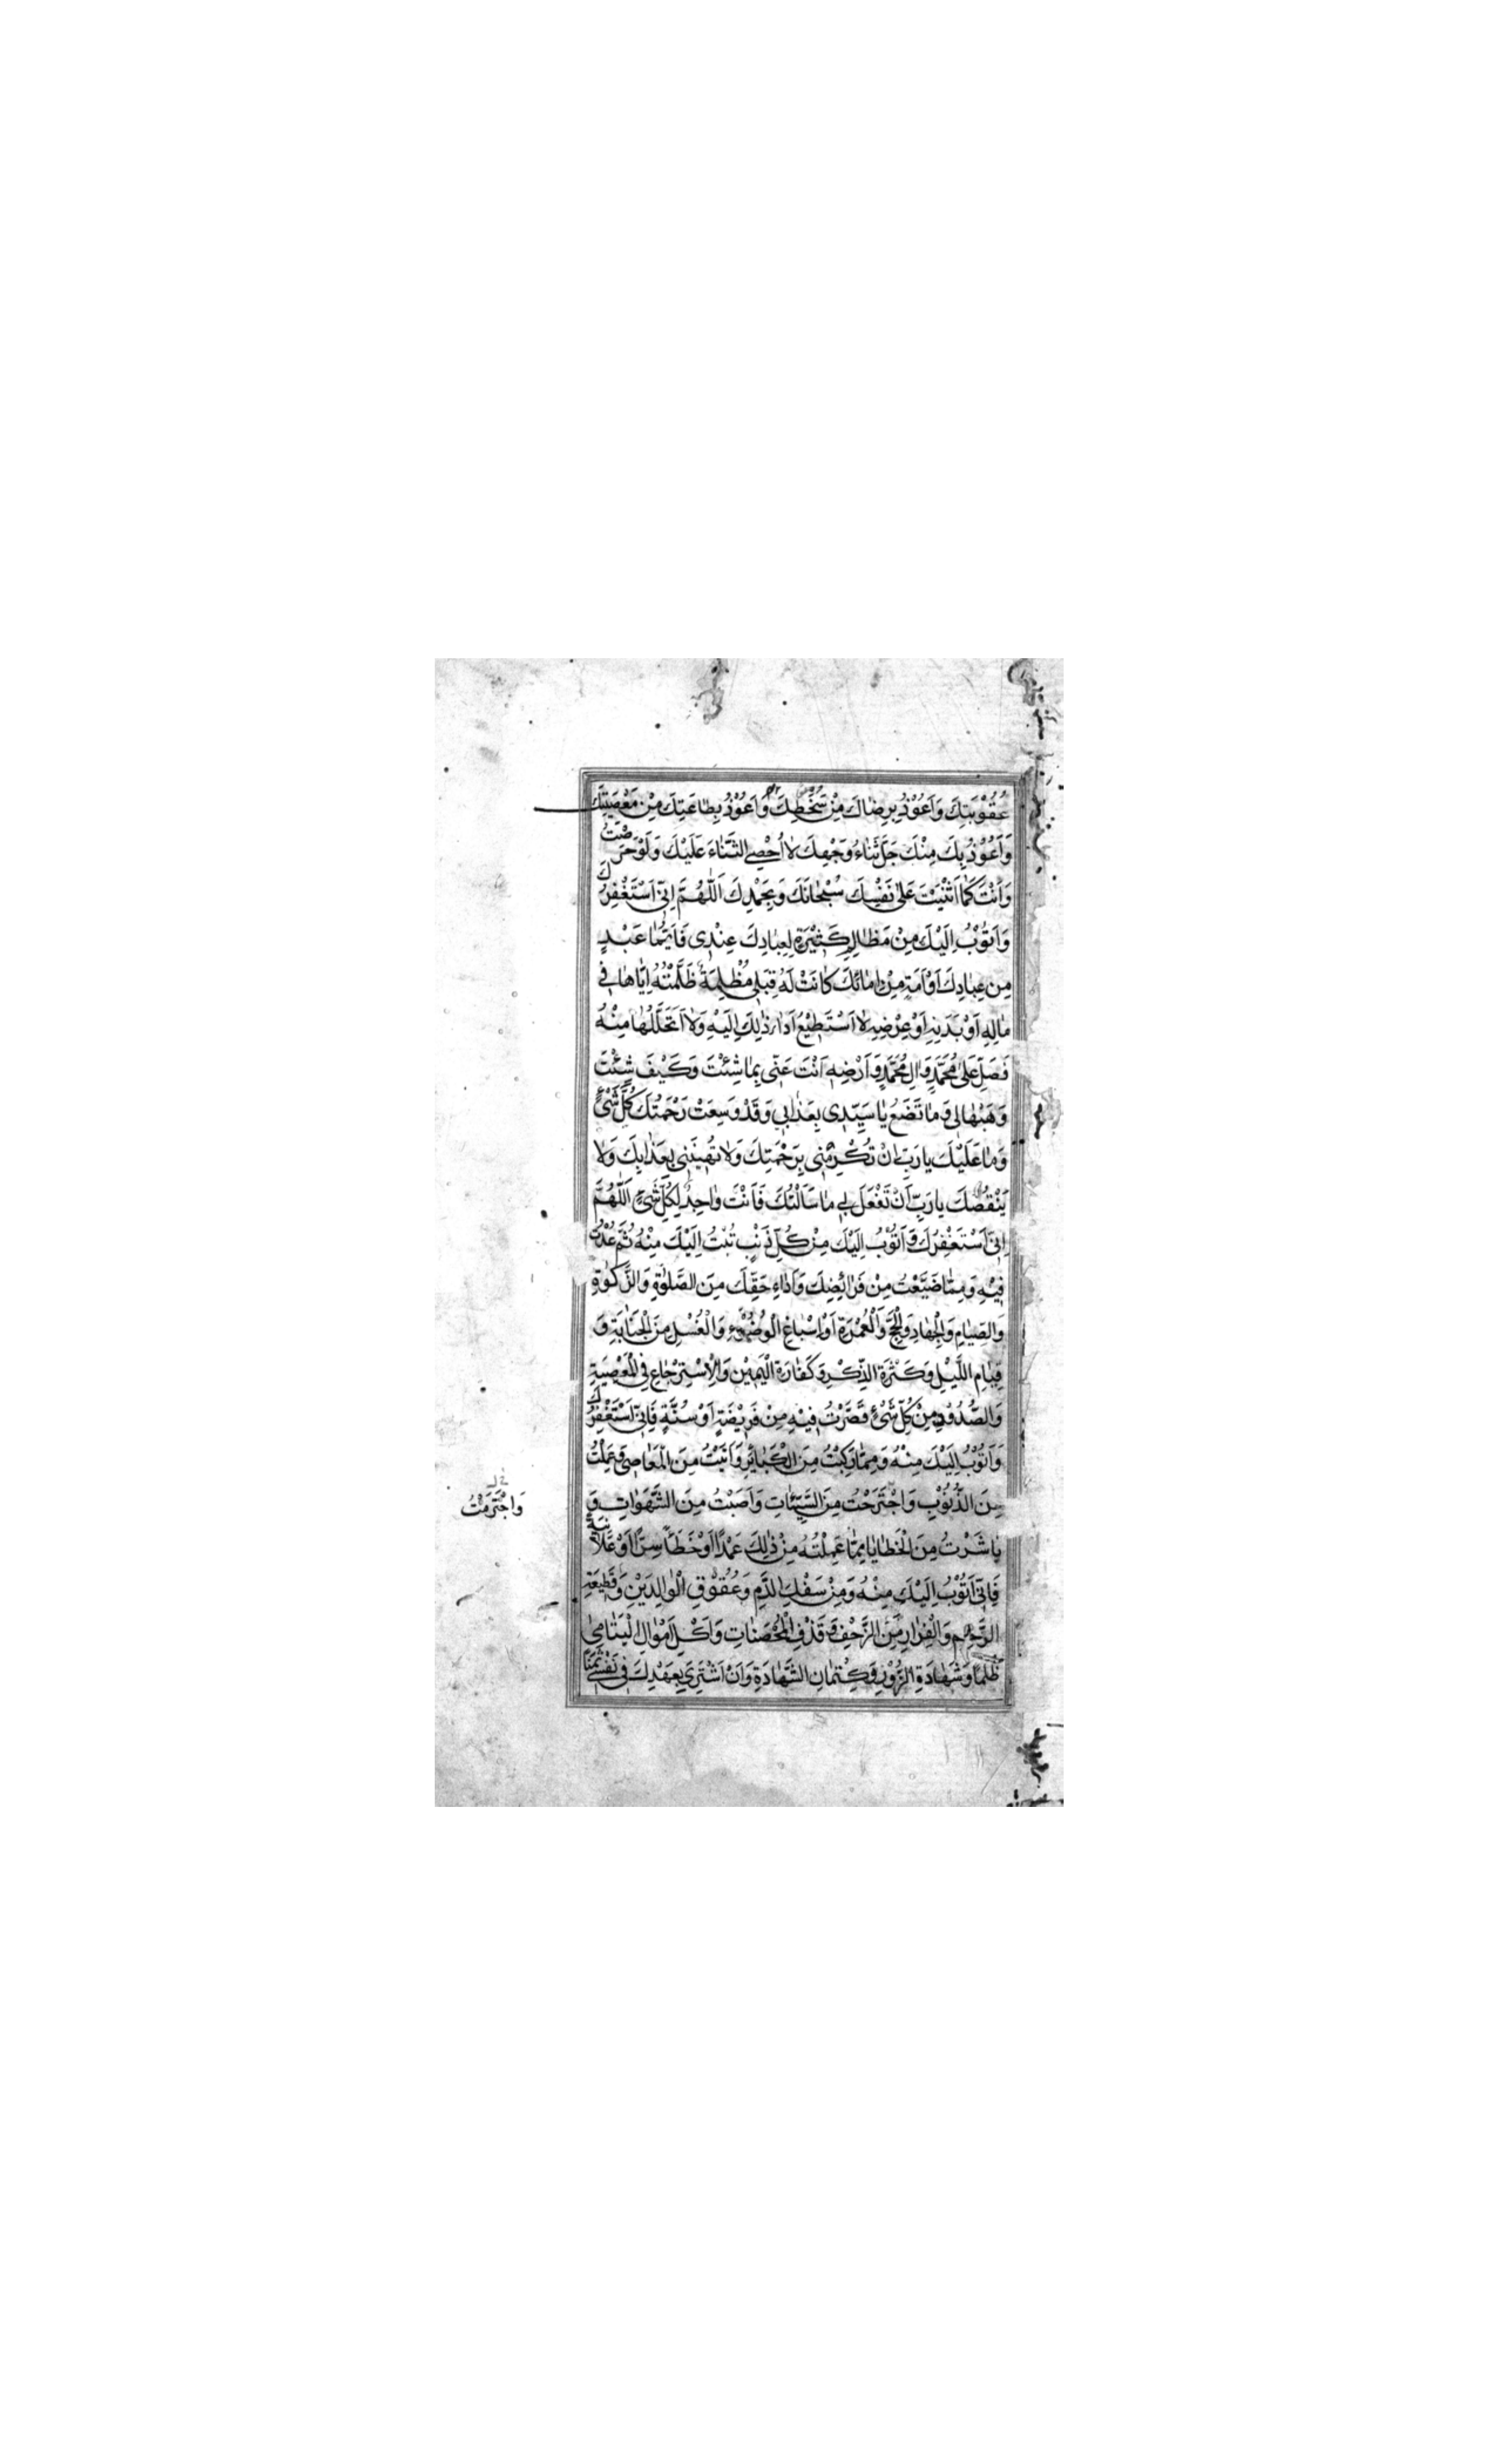 عُقُوْبَتِكَ وَاَعُوْذُ بِرِضَاكَ مِنْ سَخَطِكَ وَاَعُوْذُ بِطَاعَتِكَ مِنْ مَعْصِيَتِكَ
وَاَعُوْذُ بِكَ مِنْكَ جَلَّ ثَنَاءُ وَجْهِكَ لَا اُحْصِي الثَّنَاءَ عَلَيْكَ وَلَوْ حَرَصْتُ
وَاَنْتَ كَمَا اَثْنَيْتَ عَلٰى نَفْسِكَ سُبْحَانَكَ وَبِحَمْدِكَ اَللّٰهُمَّ اِنِّى اَسْتَغْفِرُكَ
وَاَتُوْبُ اِلَيْكَ مِنْ مَظَالِمِ كَثِيْرَةٍ لِعِبَادِكَ عِنْدِى فَاَيُّمَا عَبْدٍ
مِنْ عِبَادِكَ اَوْ اَمَةٍ مِنْ اِمَائِكَ كَانَتْ لَهُ قِبَلِى مَظْلِمَةٌ ظَلَمْتُهُ اِيَّاهَا فِى
مَالِهِ اَوْ بَدَنِهِ اَوْ عِرْضِهِ لَا اَسْتَطِيْعُ اَدَاءَ ذٰلِكَ اِلَيْهِ وَلَا اَتَحَلَّلُهَا مِنْهُ
فَصَلِّ عَلٰى مُحَمَّدٍ وَاٰلِ مُحَمَّدٍ وَاَرْضِهِ اَنْتَ عَنِّى بِمَا شِئْتَ وَكَيْفَ شِئْتَ
وَهَبْهَا لِى وَمَا تَصْنَعُ يَا سَيِّدِى بِعَذَابِى وَقَدْ وَسِعَتْ رَحْمَتُكَ كُلَّ شَىْءٍ
وَمَا عَلَيْكَ يَا رَبِّ اَنْ تُكْرِمَنِى بِرَحْمَتِكَ وَلَا تُهِيْنَنِى بِعَذَابِكَ وَلَا
يَنْقُصُكَ يَا رَبِّ اَنْ تَفْعَلَ بِى مَا سَاَلْتُكَ فَاَنْتَ وَاجِدٌ لِكُلِّ شَىْءٍ اَللّٰهُمَّ
اِنِّى اَسْتَغْفِرُكَ وَاَتُوْبُ اِلَيْكَ مِنْ كُلِّ ذَنْبٍ تُبْتُ اِلَيْكَ مِنْهُ ثُمَّ عُدْتُ
فِيْهِ وَمِمَّا ضَيَّعْتُ مِنْ فَرَائِضِكَ وَاَدَاءِ حَقِّكَ مِنَ الصَّلٰوةِ وَالزَّكٰوةِ
وَالصِّيَامِ وَالْجِهَادِ وَالْحَجِّ وَالْعُمْرَةِ اَوْ اِسْبَاغِ الْوُضُوْءِ وَالْغُسْلِ مِنَ الْجَنَابَةِ وَ
قِيَامِ اللَّيْلِ وَكَثْرَةِ الذِّكْرِ وَكَفَّارَةِ الْيَمِيْنِ وَالْاِسْتِرْجَاعِ فِى الْمَعْصِيَةِ
وَالصُّدُوْدِ مِنْ كُلِّ شَىْءٍ قَصَّرْتُ فِيْهِ مِنْ فَرِيْضَةٍ اَوْ سُنَّةٍ فَاِنِّى اَسْتَغْفِرُكَ
وَاَتُوْبُ اِلَيْكَ مِنْهُ وَمِمَّا رَكِبْتُ مِنَ الْكَبَائِرِ وَاَتَيْتُ مِنَ الْمَعَاصِى وَعَمِلْتُ
مِنَ الذُّنُوْبِ وَاجْتَرَحْتُ مِنَ السَّيِّئَاتِ وَاَصَبْتُ مِنَ الشَّهَوَاتِ وَ
وَاجْتَرَمْتُ
بَاشَرْتُ مِنَ الْخَطَايَا مِمَّا عَمِلْتُهُ مِنْ ذٰلِكَ عَمْدًا اَوْ خَطَأً سِرًّا اَوْ عَلَانِيَةً
فَاِنِّى اَتُوْبُ اِلَيْكَ مِنْهُ وَمِنْ سَفْكِ الدَّمِ وَعُقُوْقِ الْوَالِدَيْنِ وَقَطِيْعَةِ
الرَّحِمِ وَالْفِرَارِ مِنَ الزَّحْفِ وَقَذْفِ الْمُحْصَنَاتِ وَاَكْلِ اَمْوَالِ الْيَتَامٰى
ظُلْمًا وَشَهَادَةِ الزُّوْرِ وَكِتْمَانِ الشَّهَادَةِ وَاَنْ اَشْتَرِىَ بِعَهْدِكَ فِى نَفْسِى ثَمَنًا